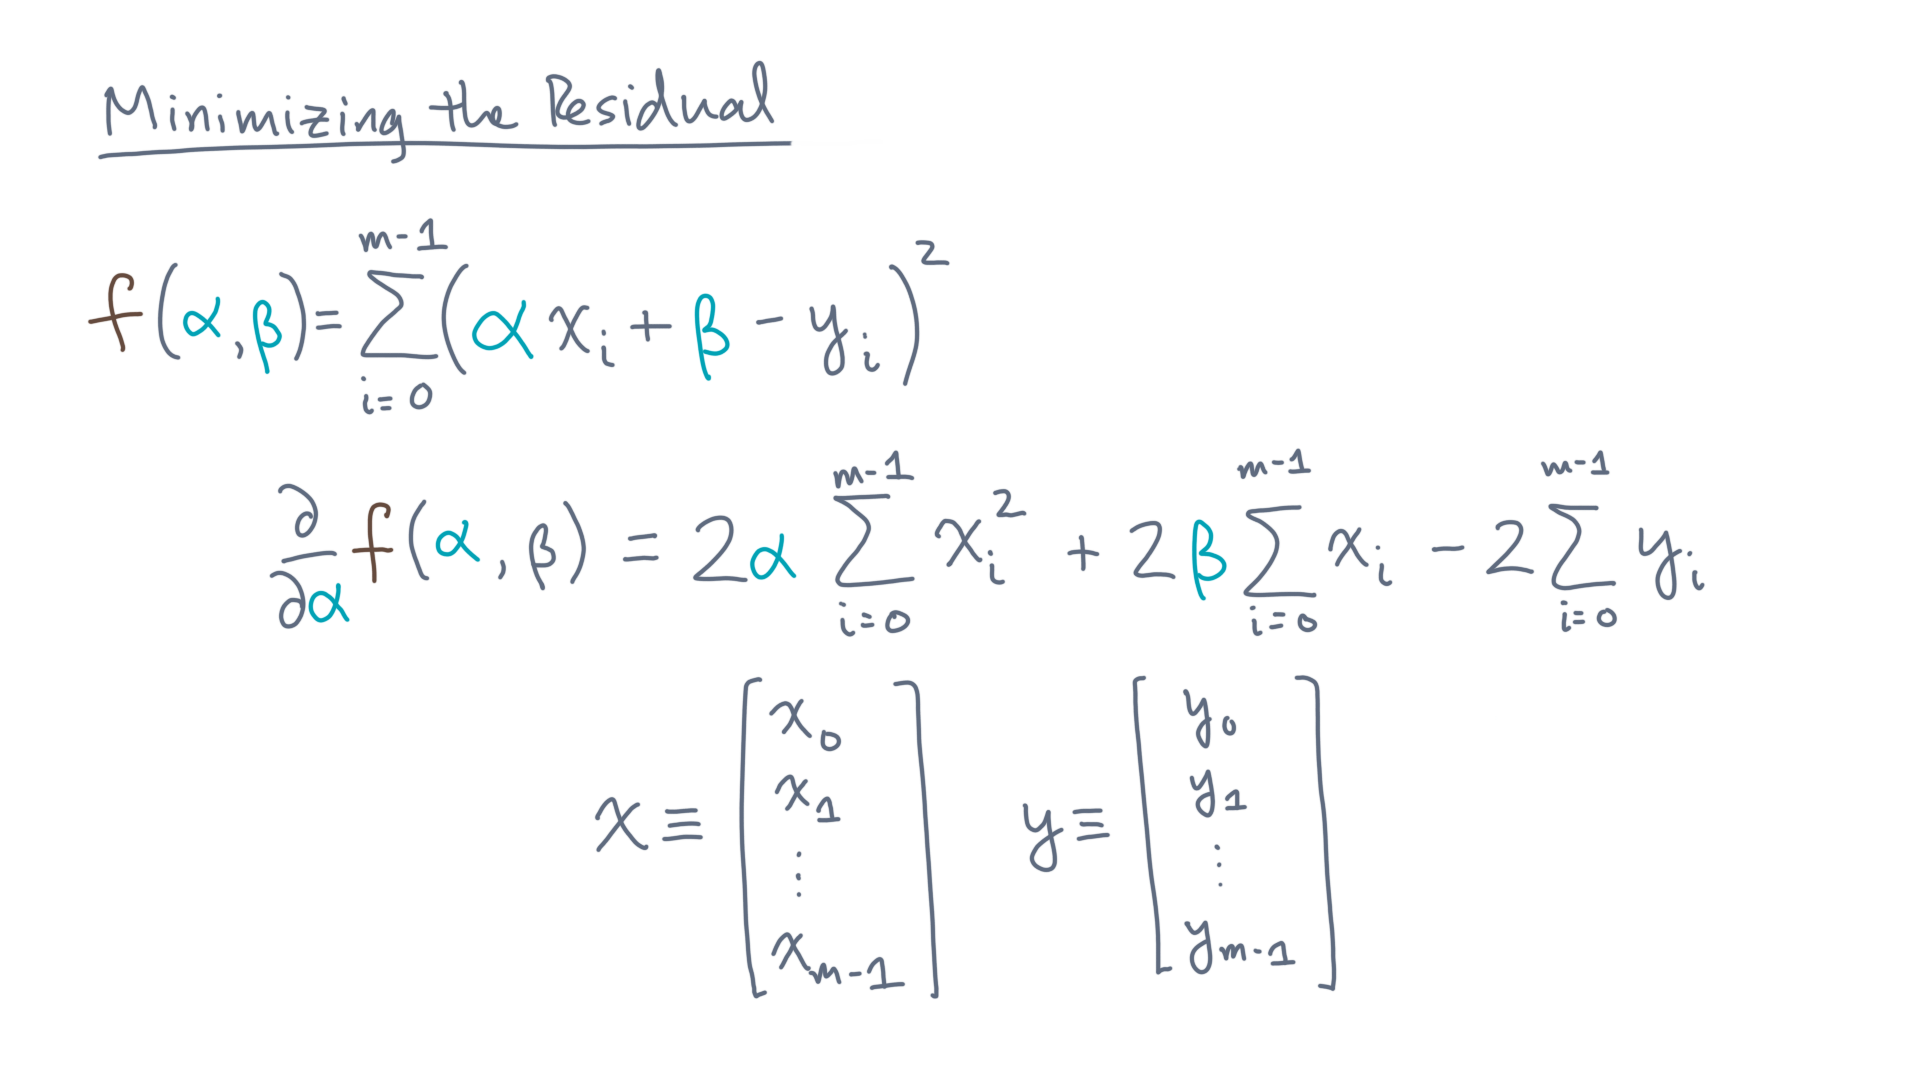 Minimizing the Residual
f(α,β) = \sum_{i=0}^{m-1} (α x_i + β - y_i)^2
\frac{∂}{∂α} f(α,β) = 2α \sum_{i=0}^{m-1} x_i^2 + 2β \sum_{i=0}^{m-1} x_i - 2 \sum_{i=0}^{m-1} y_i
x ≡ \begin{bmatrix} x_0 \\ x_1 \\ \vdots \\ x_{m-1} \end{bmatrix} y ≡ \begin{bmatrix} y_0 \\ y_1 \\ \vdots \\ y_{m-1} \end{bmatrix}